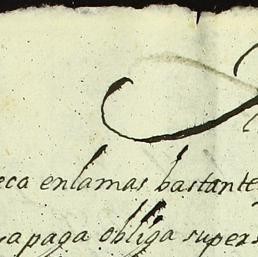 eca enlamas bastante
apaga obliga supers